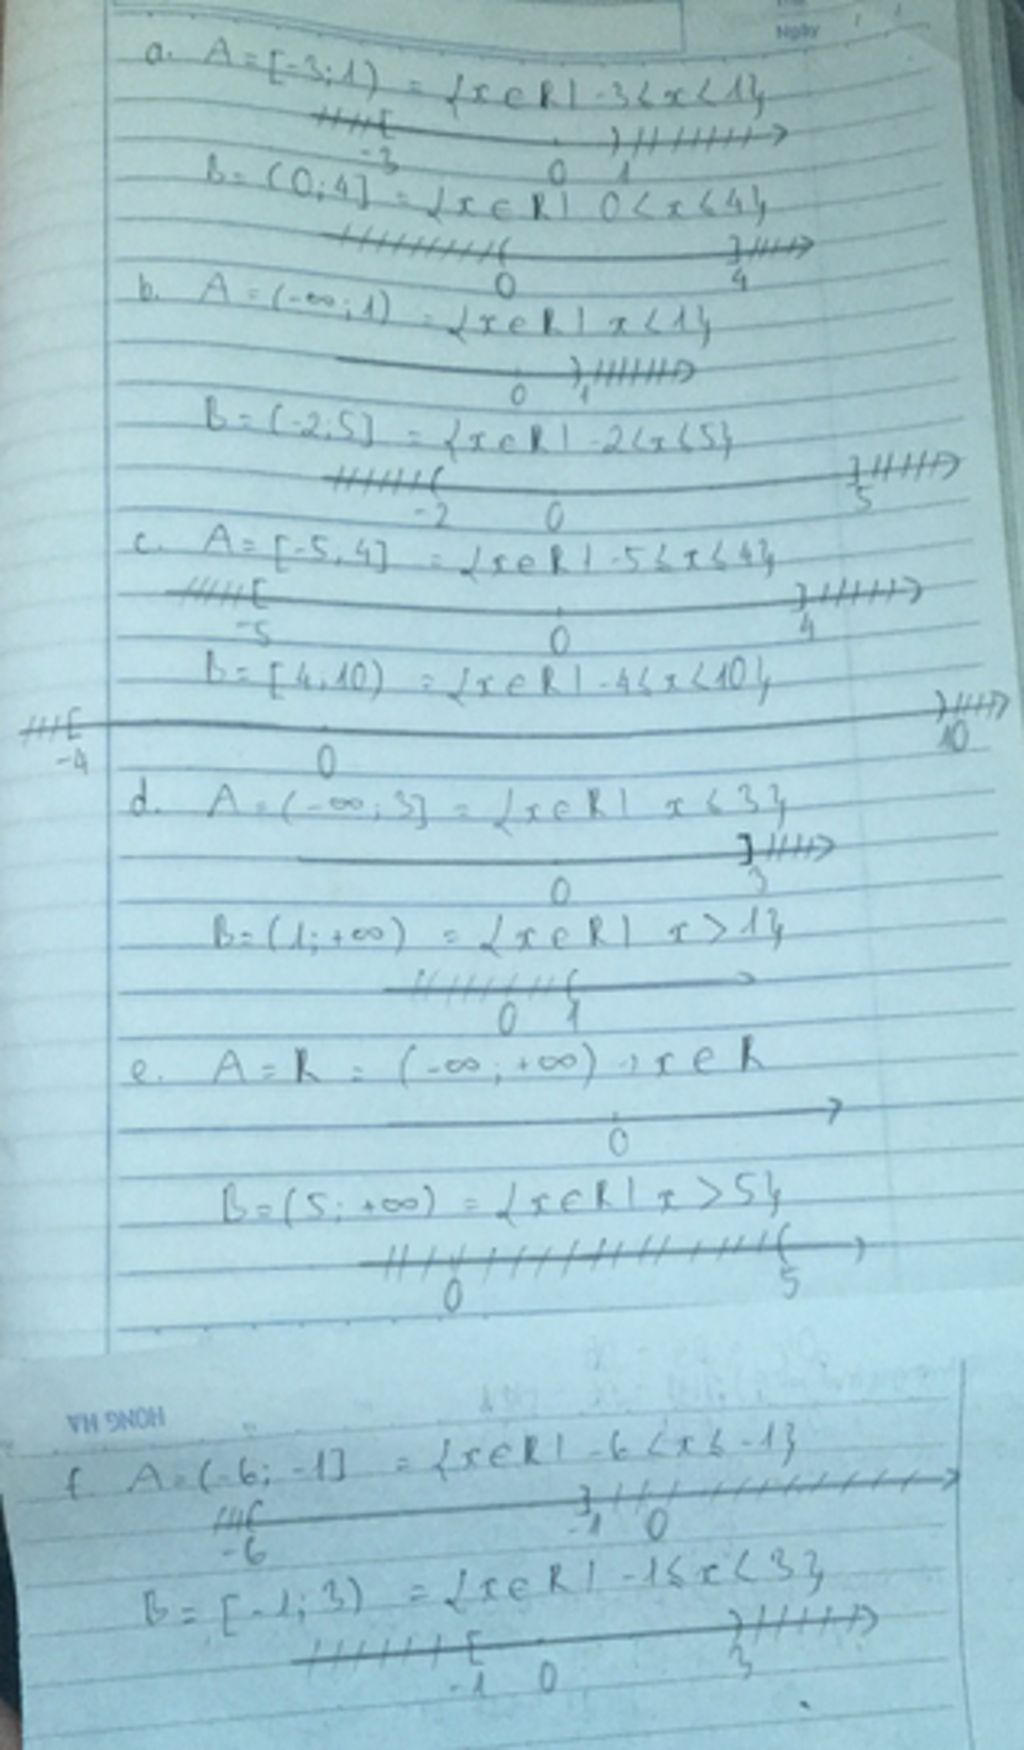 Ngày / /
a. A = [-3; 1) = {x ∈ R | -3 ≤ x < 1}
-3 0 1
B = (0; 4] = {x ∈ R | 0 < x ≤ 4}
0 4
b. A = (-∞; 1) = {x ∈ R | x < 1}
0 1
B = (-2; 5] = {x ∈ R | -2 < x ≤ 5}
-2 0 5
c. A = [-5; 4] = {x ∈ R | -5 ≤ x ≤ 4}
-5 0 4
B = [4; 10) = {x ∈ R | -4 ≤ x < 10}
-4 0 10
d. A = (-∞; 3] = {x ∈ R | x ≤ 3}
0 3
B = (1; +∞) = {x ∈ R | x > 1}
0 1
e. A = R = (-∞; +∞) → x ∈ R
0
B = (5; +∞) = {x ∈ R | x > 5}
0 5
HONG HA
f. A = (-6; -1] = {x ∈ R | -6 < x ≤ -1}
-6 -1 0
B = [-1; 3) = {x ∈ R | -1 ≤ x < 3}
-1 0 3